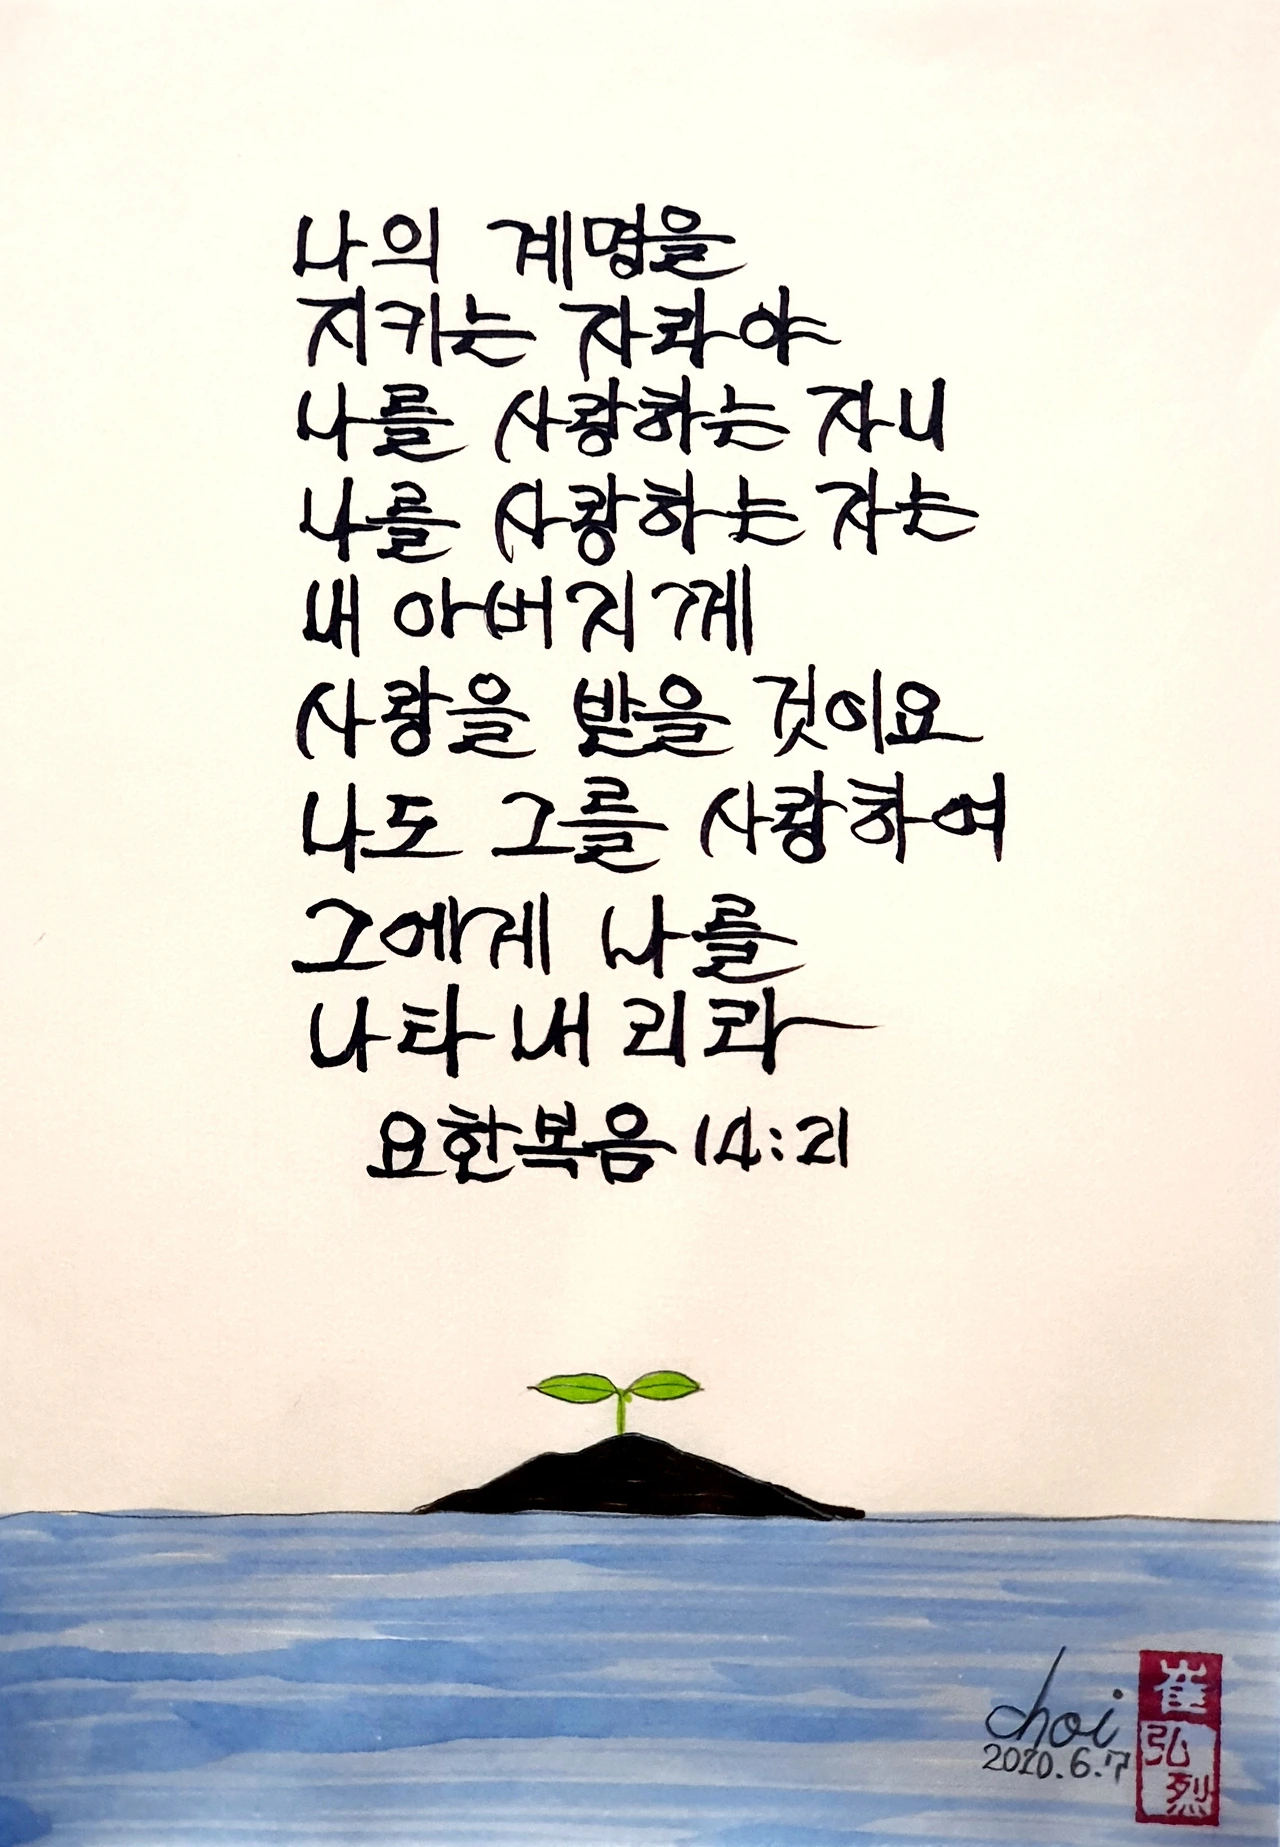 나의 계명을
지키는 자라야
나를 사랑하는 자니
나를 사랑하는 자는
내 아버지께
사랑을 받을 것이요
나도 그를 사랑하여
그에게 나를
나타내리라
요한복음 14:21
choi
2020.6.7
崔
弘
烈